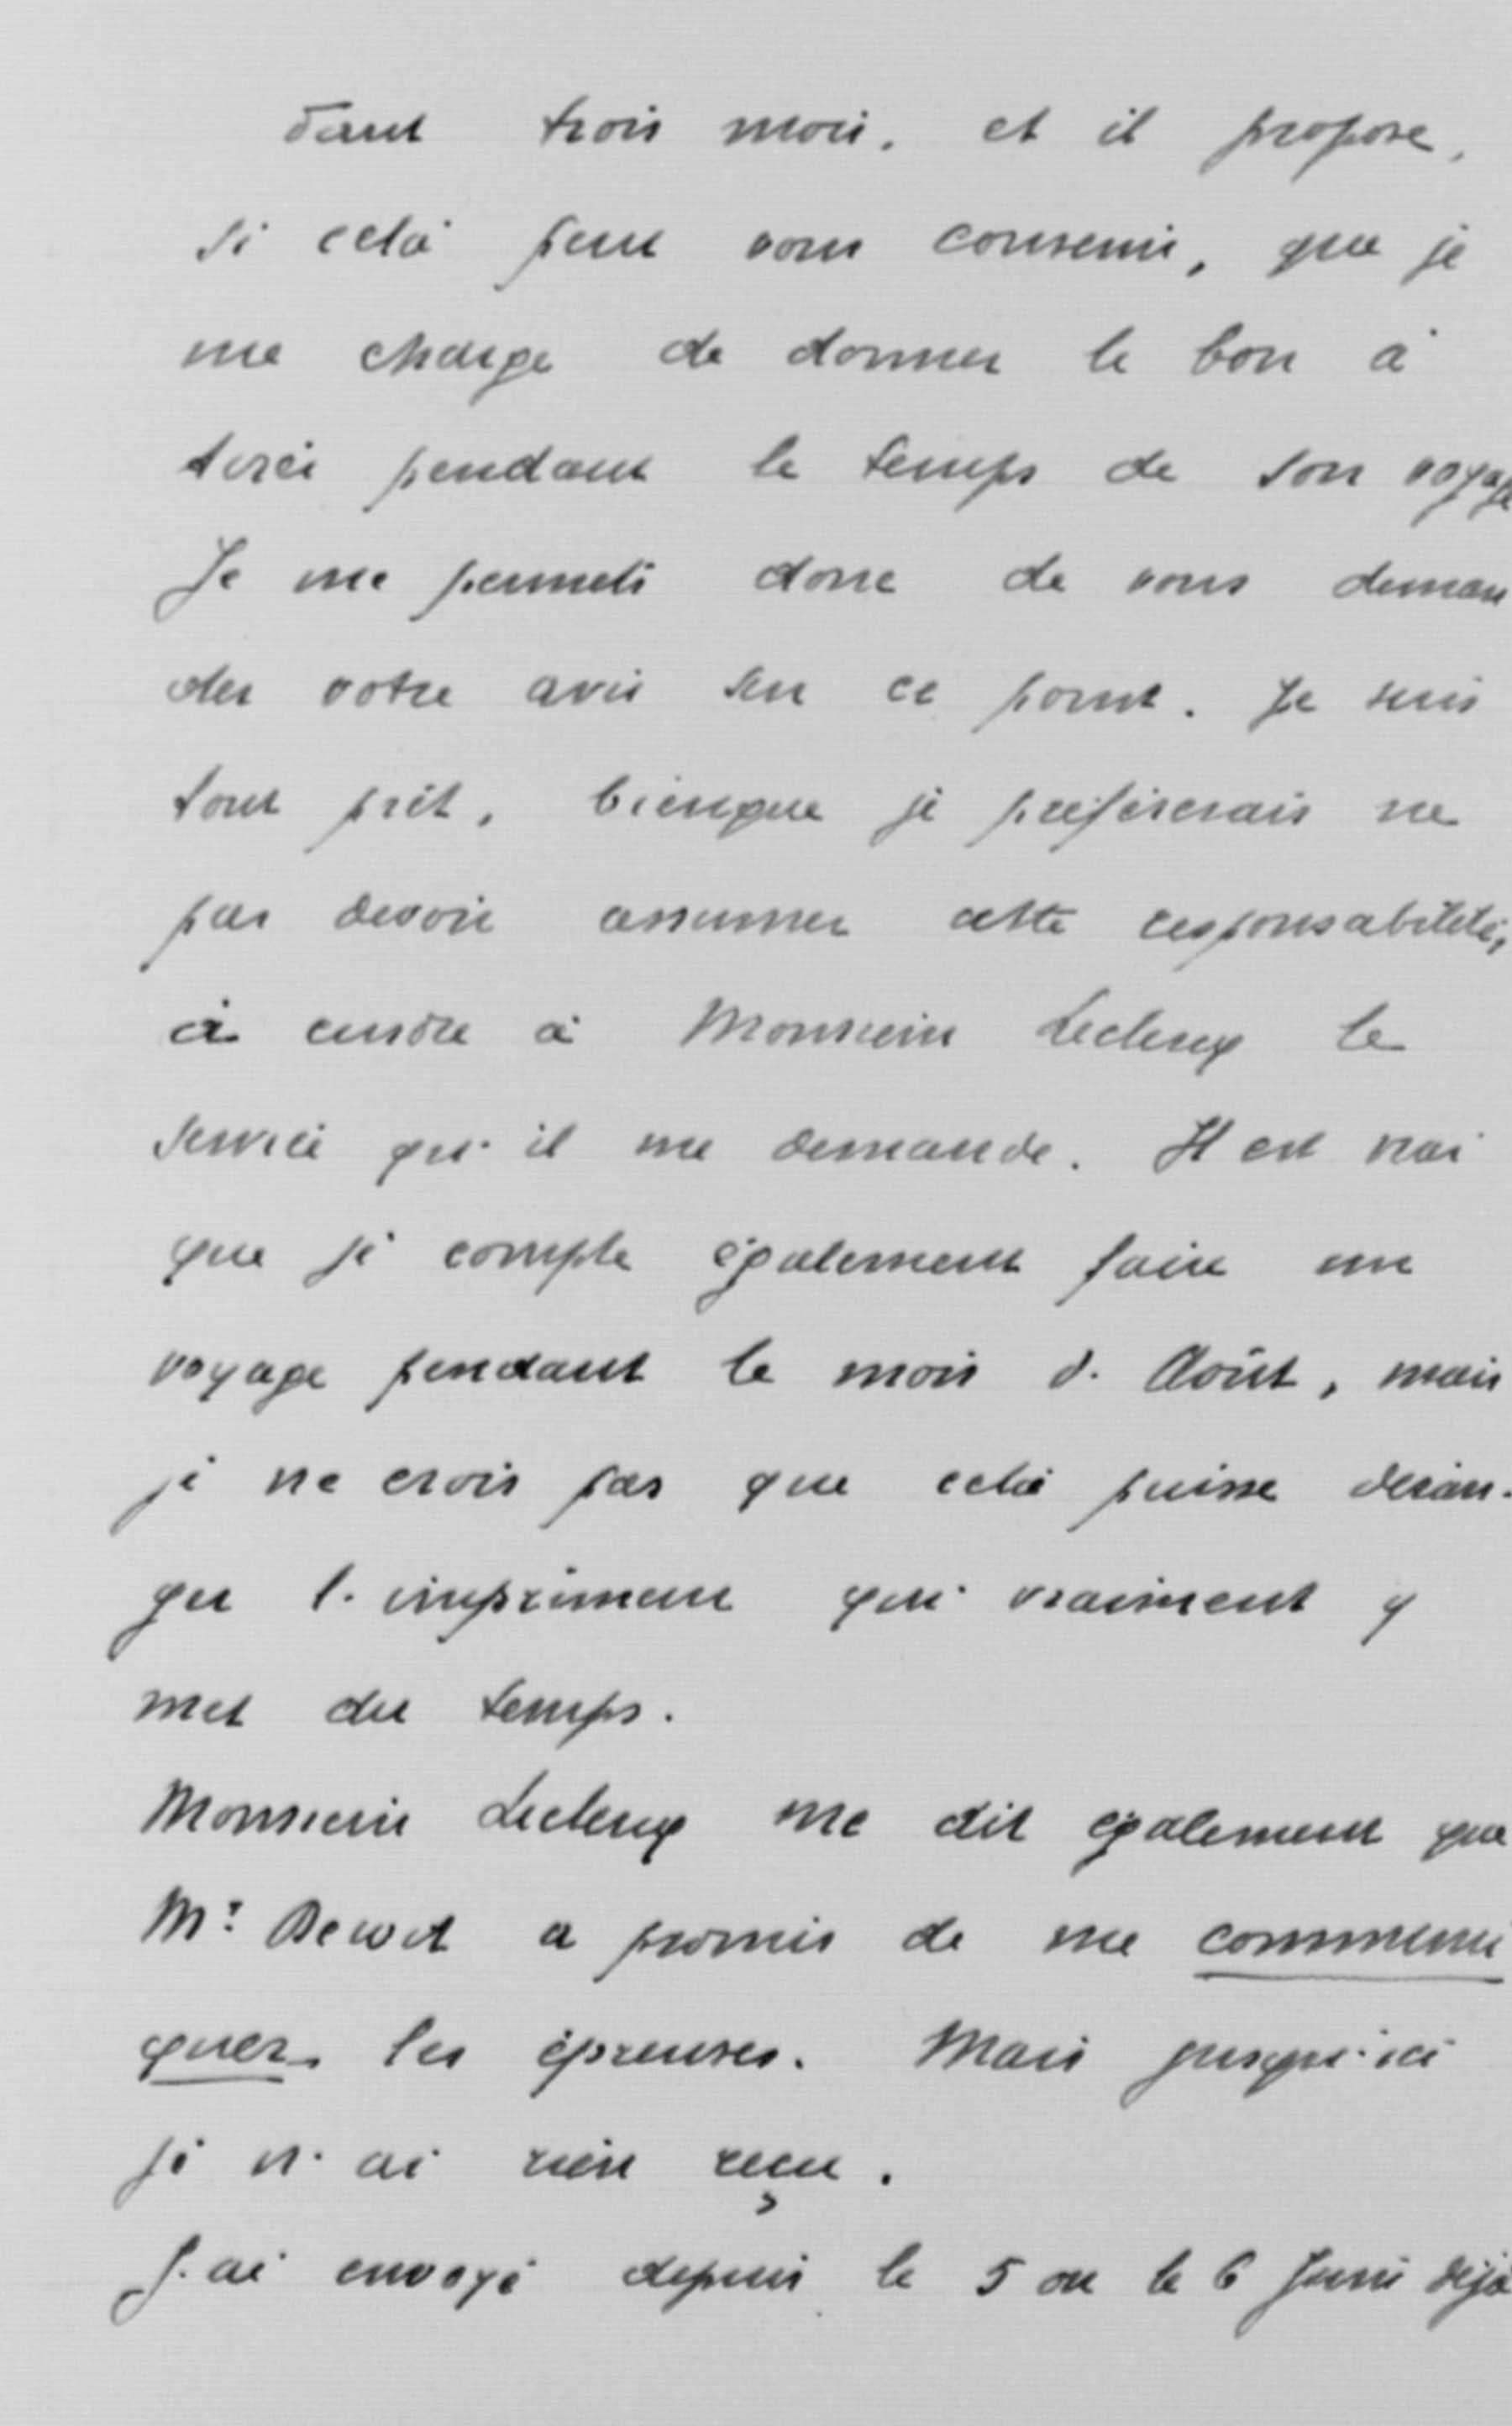 dant trois mois, et il propose,
si celà peut vous convenir, que je
me charge de donner le bon à
tirer pendant le temps de son voyage
Je me permets donc de vous deman
der votre avis sur ce point. Je suis
tout prêt, bienque je préfèrerais ne
pas devoir assumer cette responsabilité,
à rendre à Monsieur Leclercq le
service qu'il me demande. Il est vrai
que je compte également faire un
voyage pendant le mois d'Août, mais
je ne crois pas que celà puisse déran-
ger l'imprimeur qui vraiment y
met du temps.
Monsieur Leclercq me dit également que
Mr Dewit a promis de me communi
quer les épreuves. Mais jusqu'ici
je n'ai rien reçu.
J'ai envoyé depuis le 5 ou le 6 Juin déjà